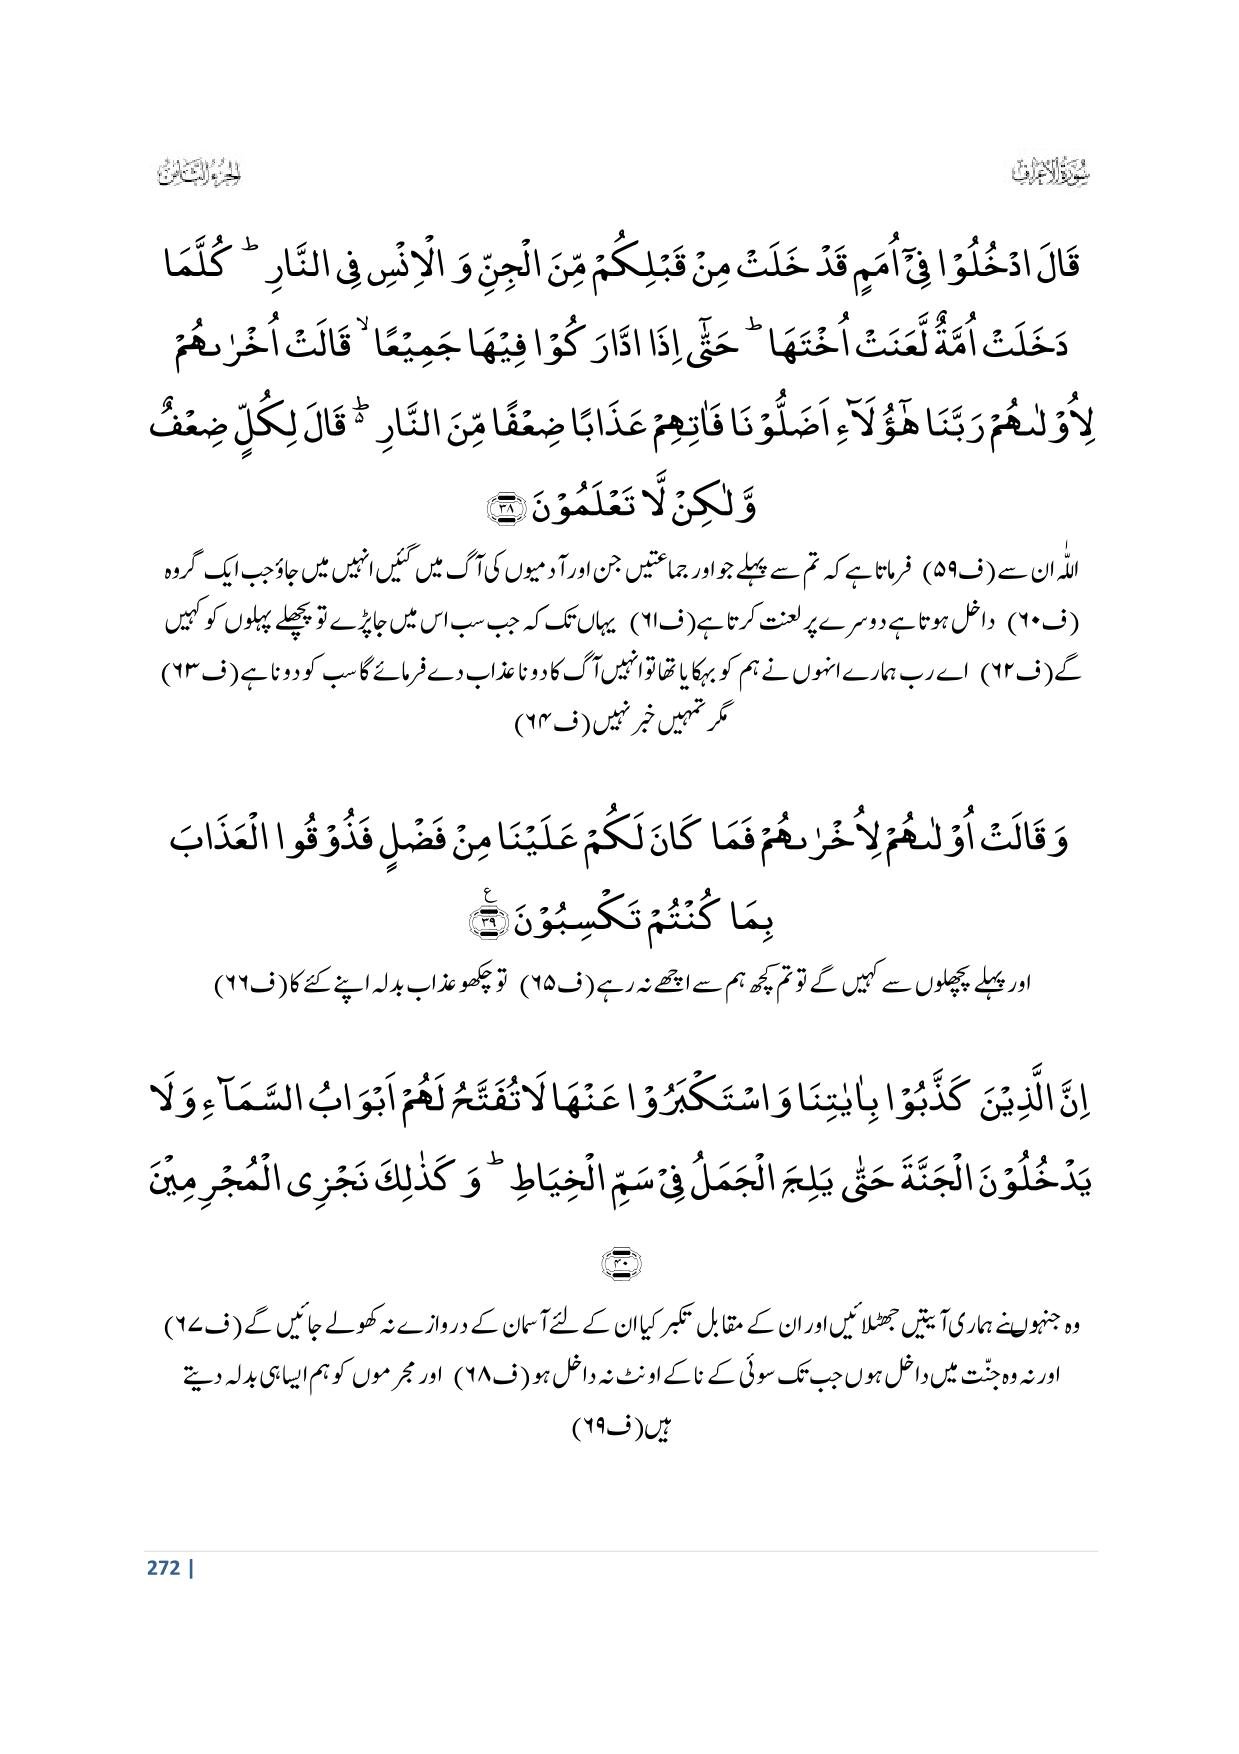 سُورَةُ الْاَعْرَاف
الجُزءُ الثَّامِنُ
قَالَ ادْخُلُوْا فِیْۤ اُمَمٍ قَدْ خَلَتْ مِنْ قَبْلِكُمْ مِّنَ الْجِنِّ وَ الْاِنْسِ فِی النَّارِ ؕ كُلَّمَا
دَخَلَتْ اُمَّةٌ لَّعَنَتْ اُخْتَهَا ؕ حَتّٰۤی اِذَا ادَّارَكُوْا فِیْهَا جَمِیْعًا ۙ قَالَتْ اُخْرٰىهُمْ
لِاُوْلٰىهُمْ رَبَّنَا هٰۤؤُلَآءِ اَضَلُّوْنَا فَاٰتِهِمْ عَذَابًا ضِعْفًا مِّنَ النَّارِ ؕ۬ قَالَ لِكُلٍّ ضِعْفٌ
وَّ لٰكِنْ لَّا تَعْلَمُوْنَ ﴿۳۸﴾
اللّٰہ ان سے (ف۵۹) فرماتا ہے کہ تم سے پہلے جو اور جماعتیں جن اور آدمیوں کی آگ میں گئیں انہیں میں جاؤ جب ایک گروہ
(ف۶۰) داخل ہوتا ہے دوسرے پر لعنت کرتا ہے(ف۶۱) یہاں تک کہ جب سب اس میں جا پڑے تو پچھلے پہلوں کو کہیں
گے(ف۶۲) اے رب ہمارے انہوں نے ہم کو بہکایا تھا تو انہیں آگ کا دونا عذاب دے فرمائے گا سب کو دونا ہے(ف۶۳)
مگر تمہیں خبر نہیں(ف۶۴)
وَ قَالَتْ اُوْلٰىهُمْ لِاُخْرٰىهُمْ فَمَا كَانَ لَكُمْ عَلَیْنَا مِنْ فَضْلٍ فَذُوْقُوا الْعَذَابَ
بِمَا كُنْتُمْ تَكْسِبُوْنَ ﴿۳۹﴾ ع
اور پہلے پچھلوں سے کہیں گے تو تم کچھ ہم سے اچھے نہ رہے(ف۶۵) تو چکھو عذاب بدلہ اپنے کئے کا(ف۶۶)
اِنَّ الَّذِیْنَ كَذَّبُوْا بِاٰیٰتِنَا وَ اسْتَكْبَرُوْا عَنْهَا لَا تُفَتَّحُ لَهُمْ اَبْوَابُ السَّمَآءِ وَ لَا
یَدْخُلُوْنَ الْجَنَّةَ حَتّٰی یَلِجَ الْجَمَلُ فِیْ سَمِّ الْخِیَاطِ ؕ وَ كَذٰلِكَ نَجْزِی الْمُجْرِمِیْنَ
﴿۴۰﴾
وہ جنہوں نے ہماری آیتیں جھٹلائیں اور ان کے مقابل تکبر کیا ان کے لئے آسمان کے دروازے نہ کھولے جائیں گے(ف۶۷)
اور نہ وہ جنّت میں داخل ہوں جب تک سوئی کے ناکے اونٹ نہ داخل ہو(ف۶۸) اور مجرموں کو ہم ایسا ہی بدلہ دیتے
ہیں(ف۶۹)
272 |